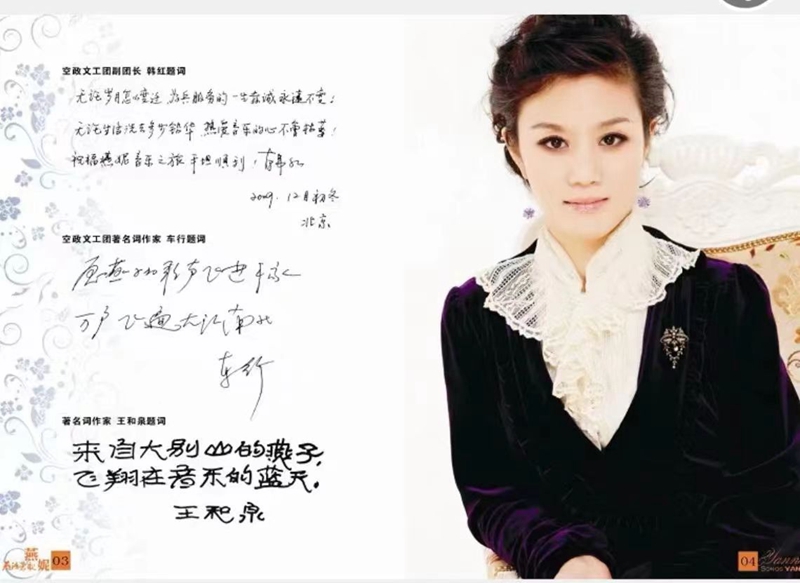 空政文工团副团长 韩红题词
无论岁月怎么变迁 为兵服务的一生赤诚永远不变！
无论生活洗去多少铅华 热爱音乐的心不会枯萎！
祝福燕妮音乐之旅平坦顺利！韩红
2009.12月初冬
北京
空政文工团著名词作家 车行题词
愿燕子的歌声飞进千家
万户飞遍大江南北
车行
著名词作家 王和泉题词
来自大别山的燕子，
飞翔在音乐的蓝天。
王和泉
燕妮 03
04 Yanni
SONGS YAN